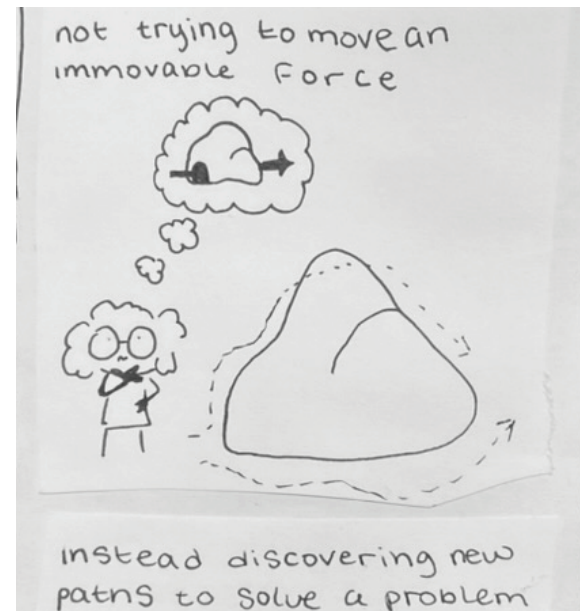 not trying to move an
immovable Force
instead discovering new
paths to solve a problem